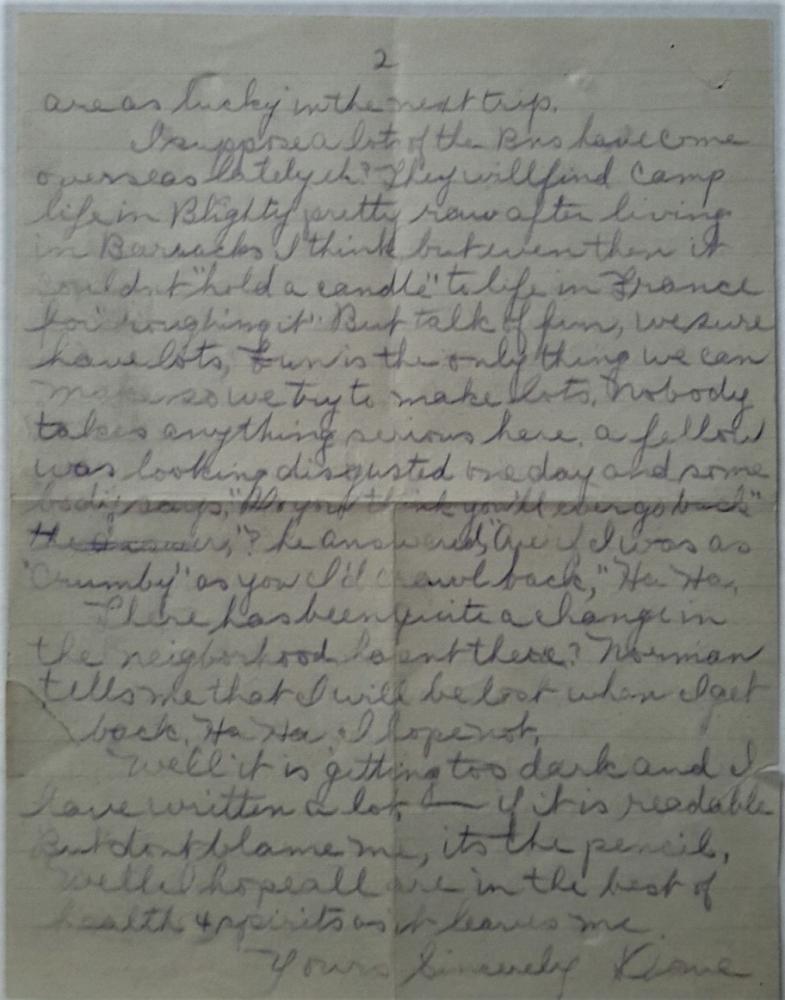 2
are as lucky in the next trip.
I suppose a lot of the Bns have come
overseas lately eh? They will find camp
life in Blighty pretty raw after living
in Barracks I think but even then it
couldnt "hold a candle" to life in France
for "roughing it". But talk of fun, we sure
have lots, Fun is the only thing we can
make so we try to make lots. Nobody
takes anything serious here. a fellow
was looking disgusted one day and some
body says, "Do you think you'll ever go back"
the answer,"? he answered, "Aye if I was as
"Crumby" as you I'd crawl back," Ha Ha,
There has been quite a change in
the neigborhood hasent there? Norman
tells me that I will be lost when I get
back. Ha Ha I hope not,
Well it is getting too dark and I
have written a lot — if it is readable
But dont blame me, its the pencil,
Well I hope all are in the best of
health & spirits as it leaves me
Yours Sincerely